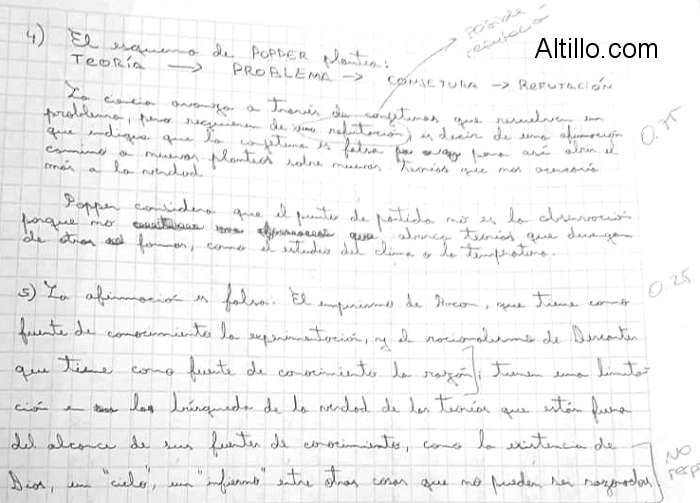 posible
refutación
Altillo.com
4) El esquema de POPPER plantea:
TEORÍA → PROBLEMA → CONJETURA → REFUTACIÓN
La ciencia avanza a través de conjeturas que resuelven un
problema, pero requieren de una refutación, es decir de una afirmación
que indique que la conjetura es falsa para así abrir el
camino a nuevos planteos sobre nuevas teorías que nos acercaría
más a la verdad.
0.75
Popper considera que el punto de partida no es la observación
porque no abarca teorías que devengan
de otras formas, como el estudio del clima o la temperatura.
0.25
5) La afirmación es falsa. El empirismo de, que tiene como
fuente de conocimiento la experimentación, y el racionalismo de Descartes
que tiene como fuente de conocimiento la razón, tienen una limita-
ción en la búsqueda de la verdad de las teorías que están fuera
del alcance de sus fuentes de conocimiento, como la existencia de
Dios, un "cielo", un "infierno" entre otras cosas que no pueden ser razonadas
NO